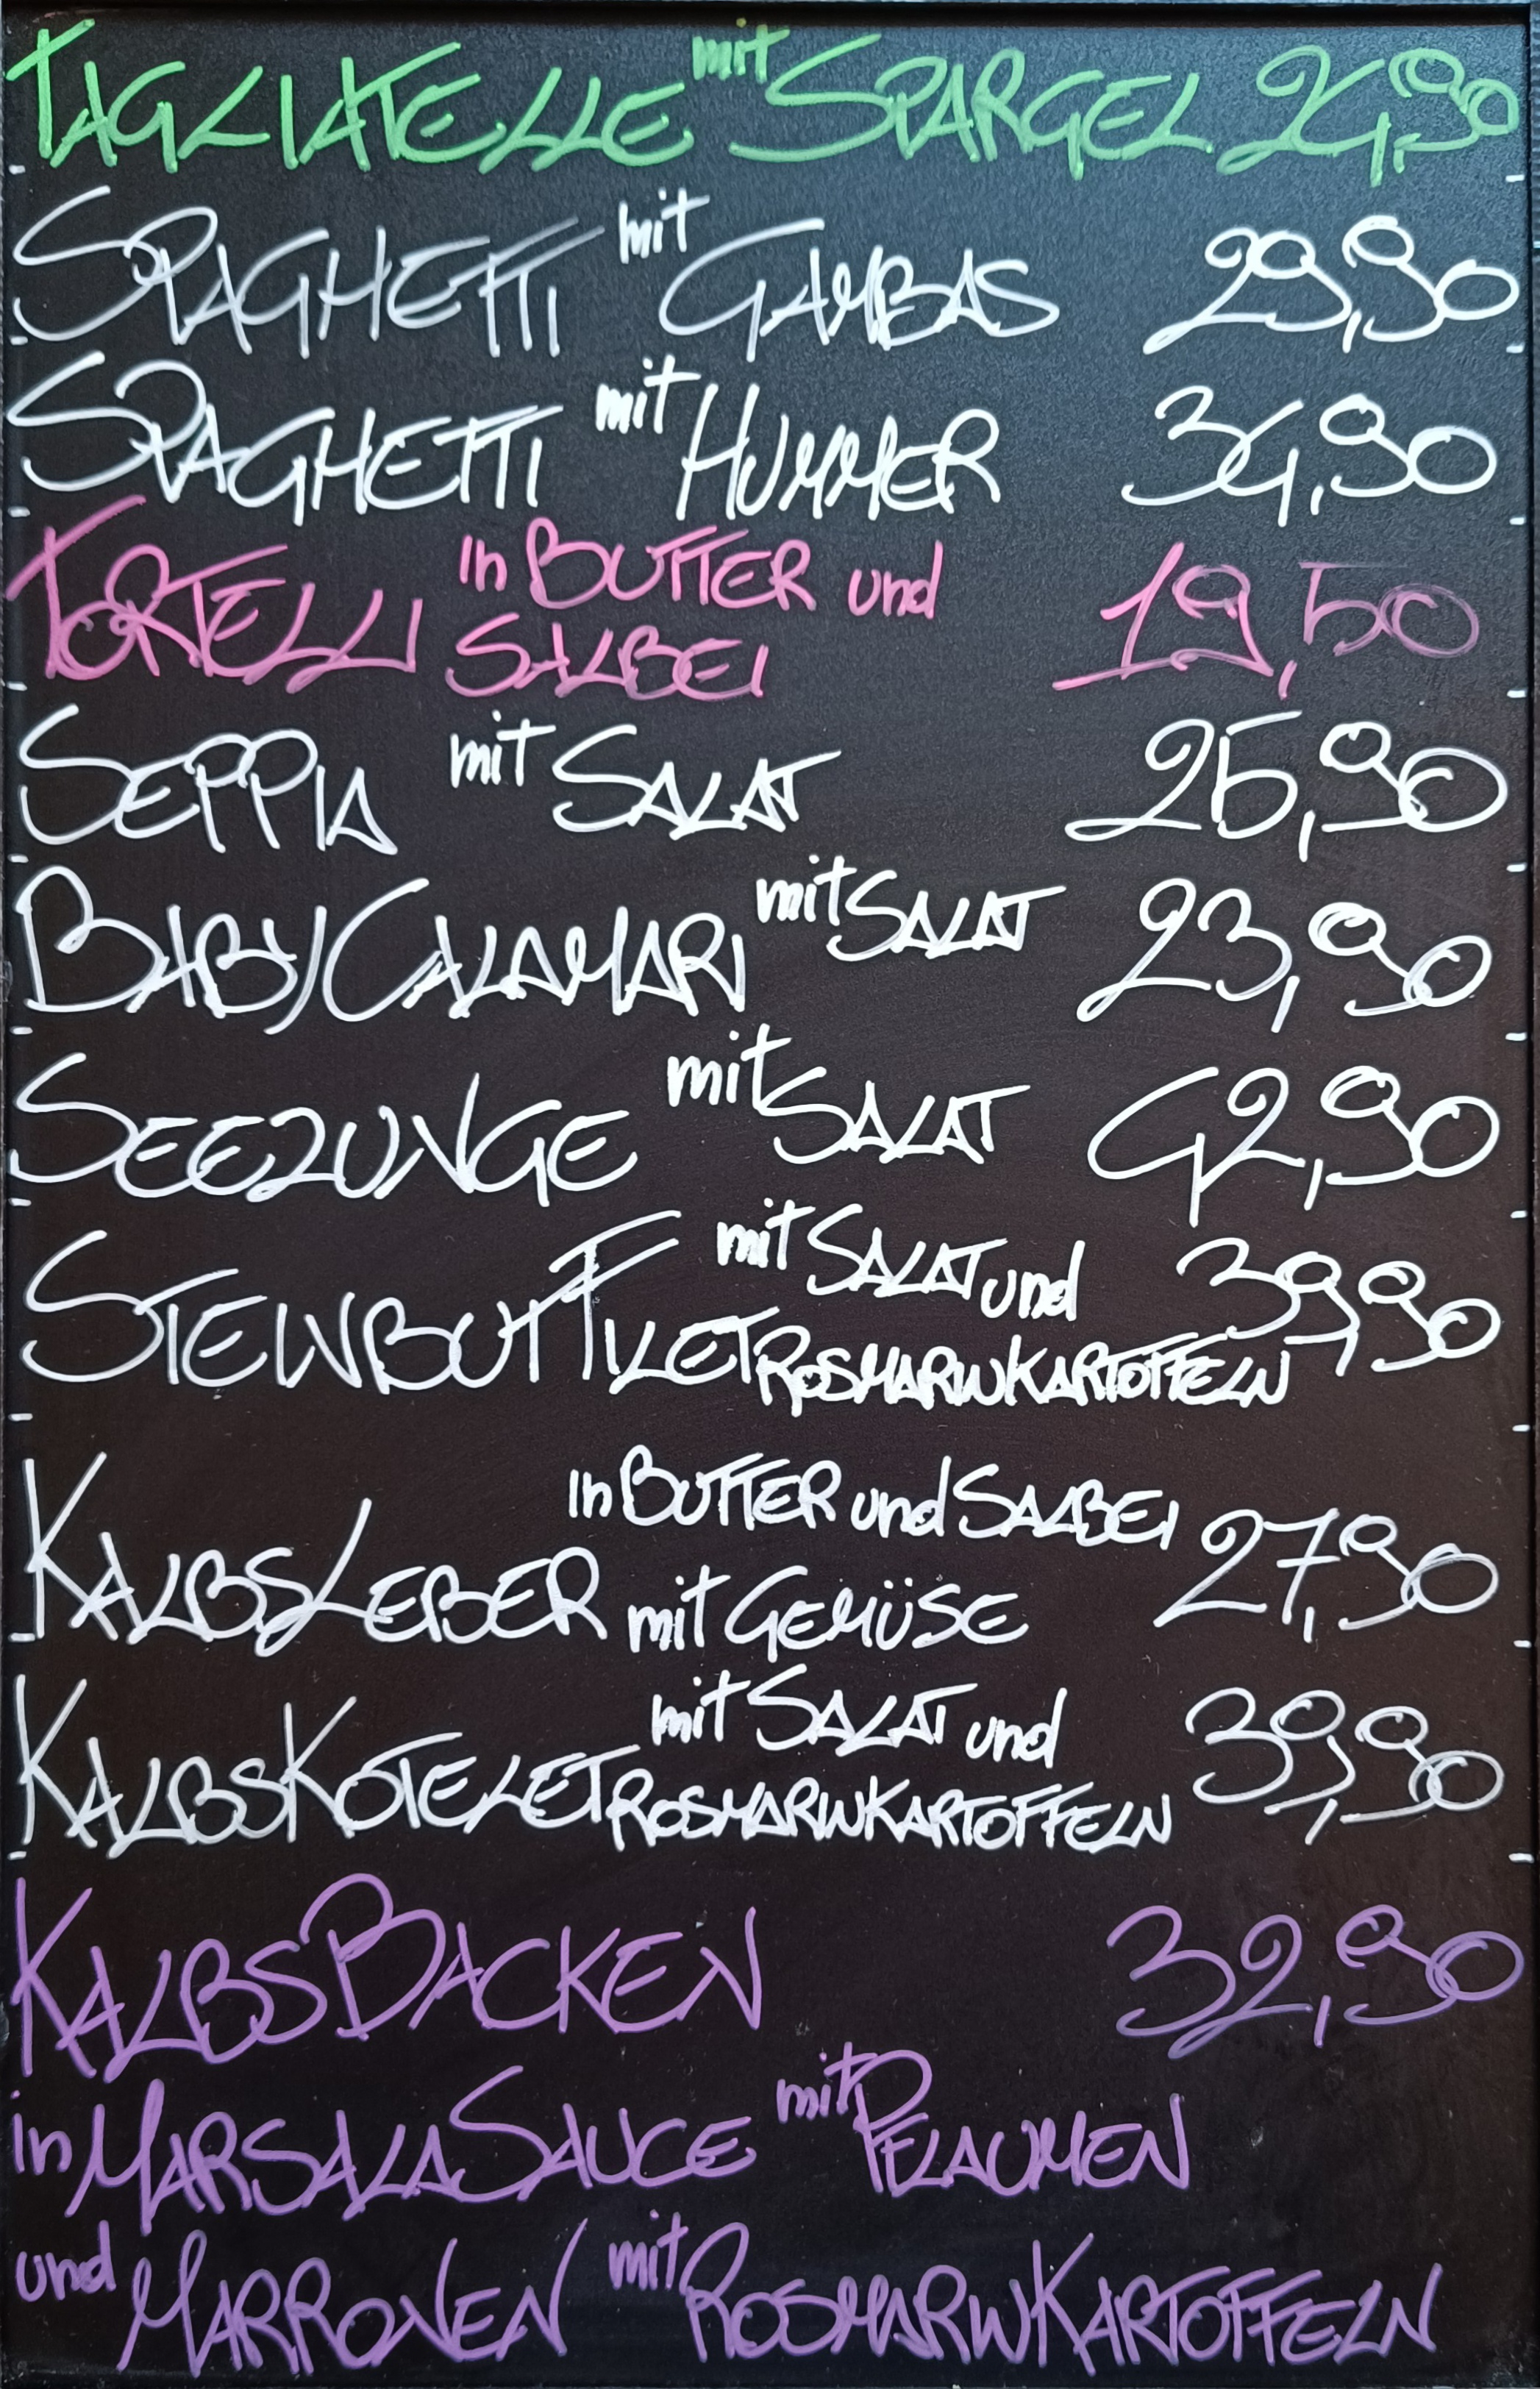 TAGLIATELLE mit SPARGEL 24,90
SPAGHETTI mit GAMBAS 29,90
SPAGHETTI mit HUMMER 34,90
TORTELLI in BUTTER und SALBEI 19,50
SEPPIA mit SALAT 25,90
BABYCALAMARI mit SALAT 23,90
SEEZUNGE mit SALAT 42,90
STEINBUTTFILET mit SALAT und ROSMARINKARTOFFELN 39,90
KALBSLEBER in BUTTER und SALBEI mit GEMÜSE 27,90
KALBSKOTELET mit SALAT und ROSMARINKARTOFFELN 39,90
KALBSBACKEN 32,90
in MARSALASAUCE mit PFLAUMEN
und MARRONEN mit ROSMARINKARTOFFELN